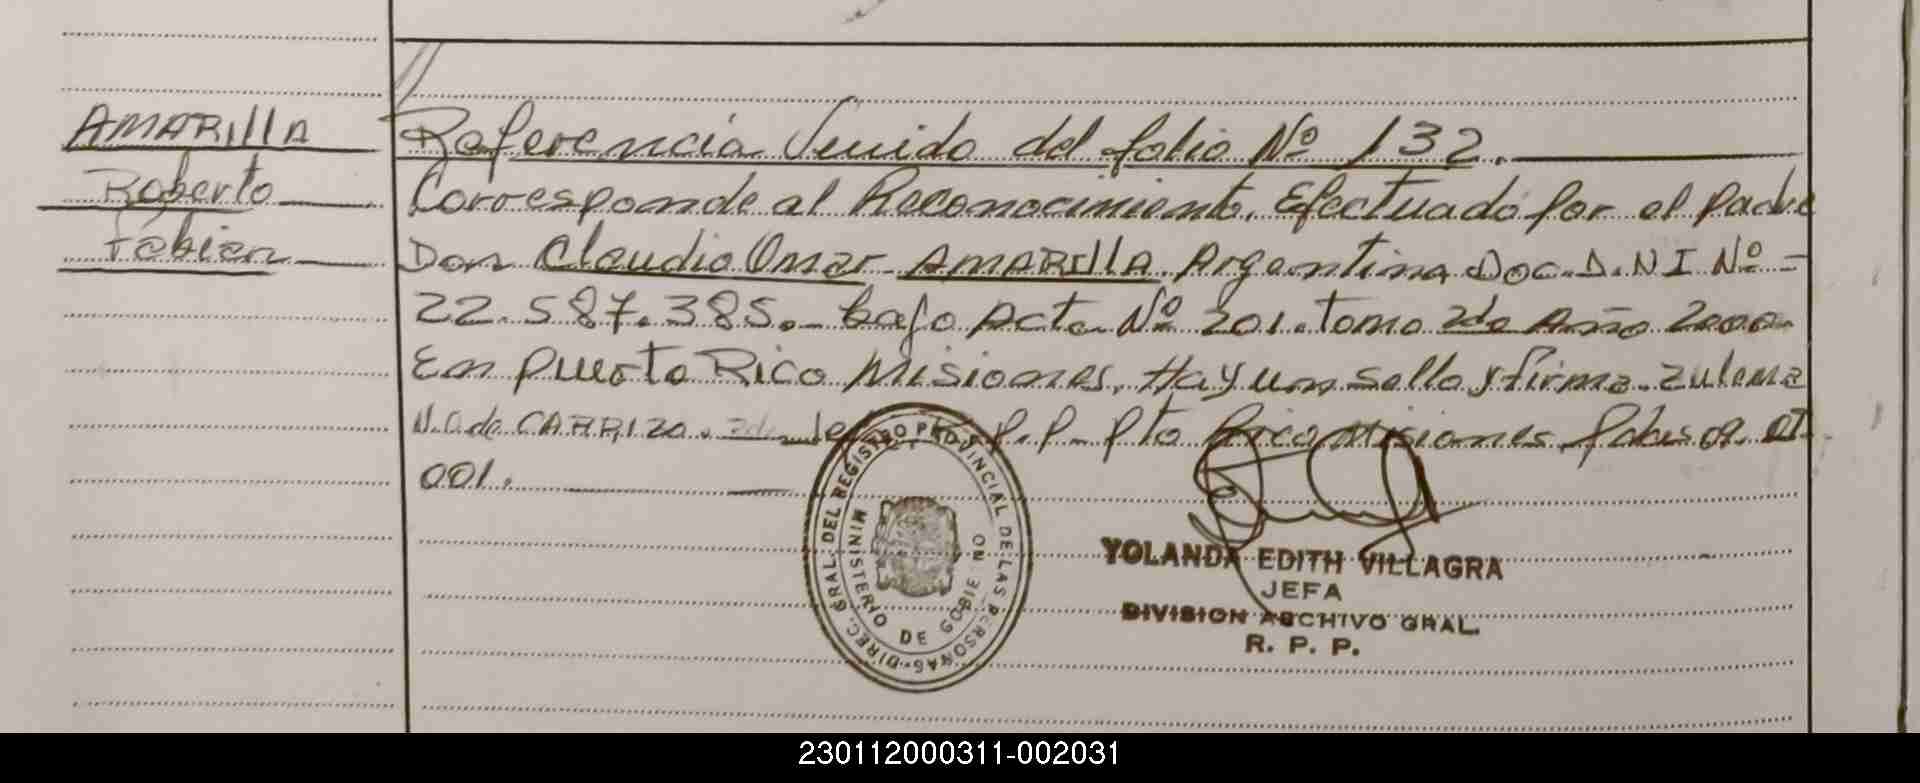 AMARILLA
Roberto
Fabian
Referencia Venido del folio Nº 132.
Corresponde al Reconocimiento. Efectuado por el padre
Don Claudio Omar AMARILLA. Argentina Doc. D.N I Nº -
22.587.385.- bajo Acta Nº 201. Tomo 2do Año 2000.
En Puerto Rico Misiones. Hay un sello y firma. Zulema
N. de CARRIZO. R.P.P. Pto Rico Misiones.
001.
DIREC. GRAL. DEL REGISTRO PROVINCIAL DE LAS PERSONAS
MINISTERIO DE GOBIERNO
YOLANDA EDITH VILLAGRA
JEFA
DIVISION ARCHIVO GRAL.
R. P. P.
230112000311-002031